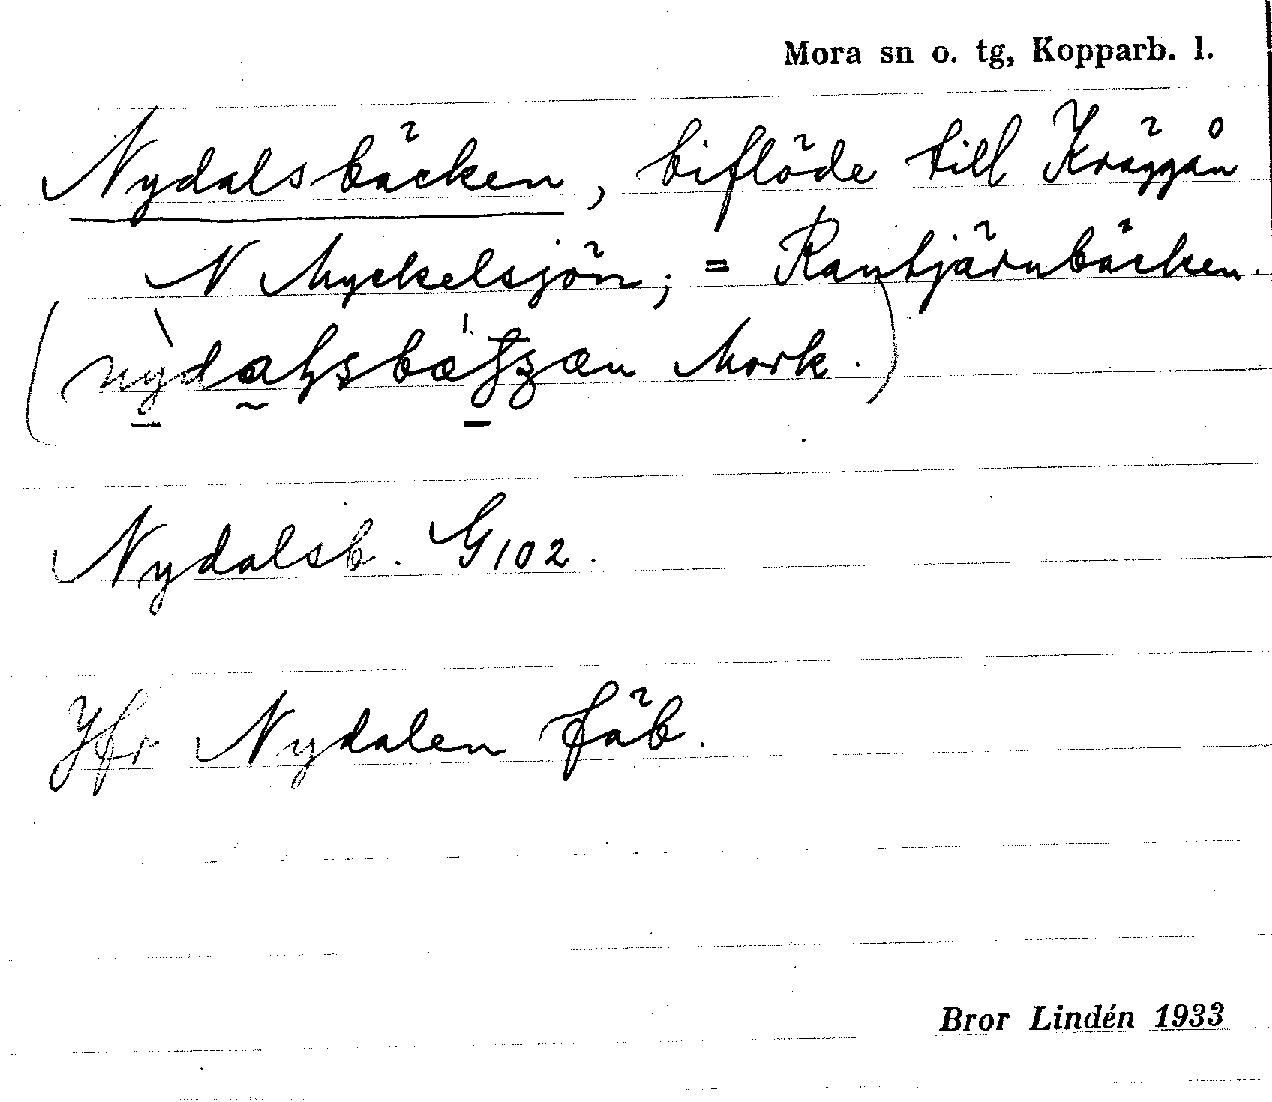 Mora sn o. tg, Kopparb. l.
Nydalsbäcken, biflöde till Kräggån
N Myckelsjön; = Rantjärnbäcken.
Mork.)
Nydalsb. G 102.
Jfr Nydalen fäb.
Bror Lindén 1933